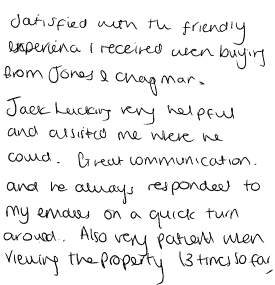 Satisfied with the friendly
experience I received when buying
from Jones & Chapman.
Jack Lucking very helpful
and assisted me where he
could. Great communication.
and he always responded to
my emails on a quick turn
around. Also very patient when
viewing the property (3 times so far)